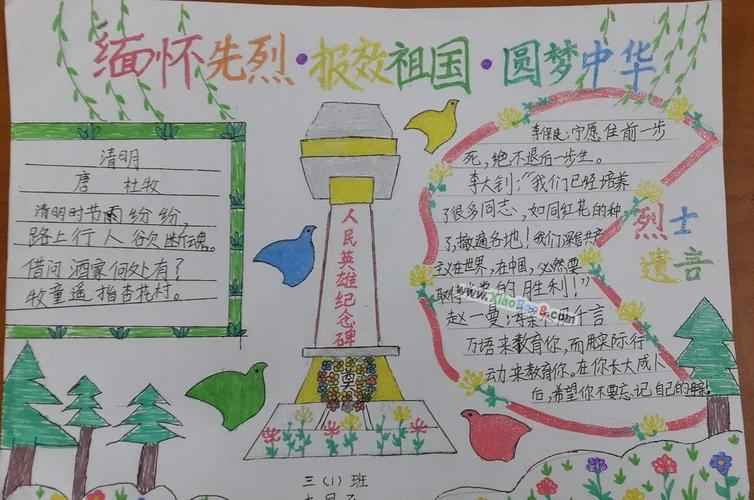 缅怀先烈·报效祖国·圆梦中华
清明
唐 杜牧
清明时节雨纷纷,
路上行人欲断魂。
借问酒家何处有?
牧童遥指杏花村。
人民英雄纪念碑
奠
李保良:宁愿往前一步
死,绝不退后一步生。
李大钊:"我们已经培养
了很多同志,如同红花的种
子,撒遍各地!我们深信共产
主义在世界,在中国,必然要
取得 的胜利!"
赵一曼: 千言
万语来教育你,而用实际行
动来教育你。在你长大成人
后,希望你不要忘记自己的
烈士
遗言
三(1)班